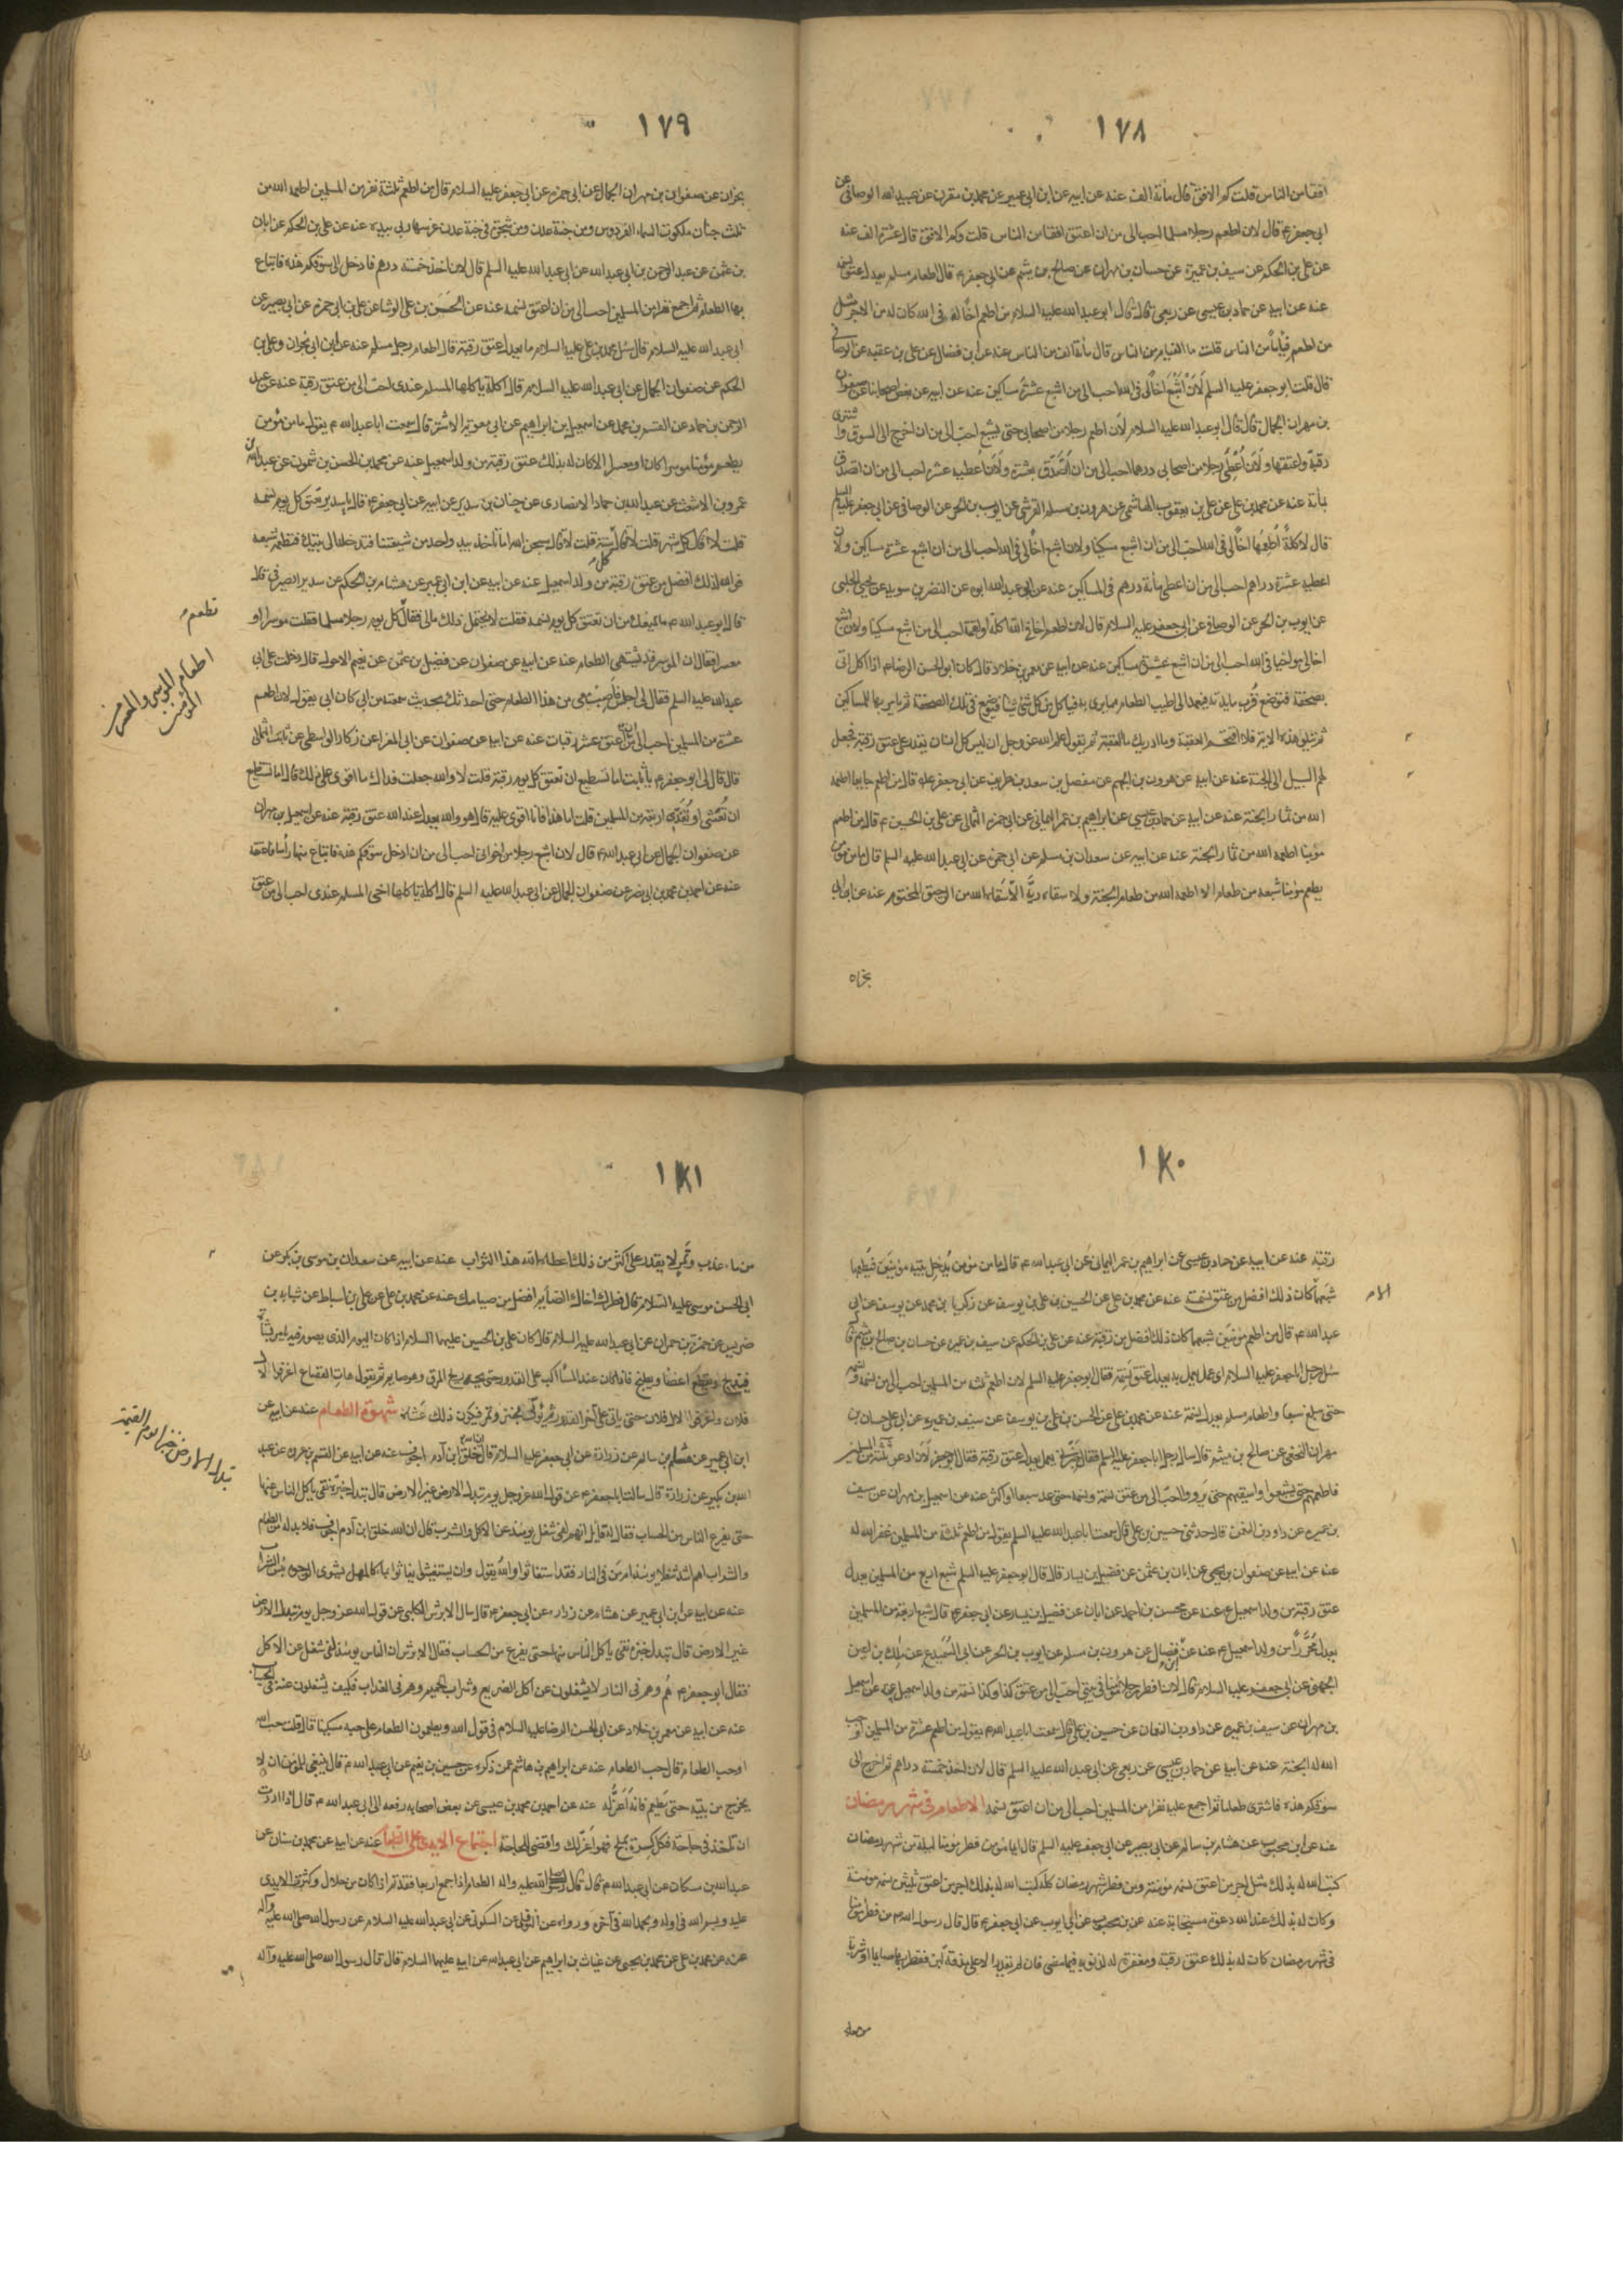 ١٧٨
افقا من الناس قلت كم الافق قال مائة الف عنه عن ابيه عن ابن ابي عمير عن محمد بن مقرن عن عبيد الله الوصافي عن
ابي جعفر ع قال لان اطعم رجلا مسلما احب الى من ان اعتق افقا من الناس قلت وكم الافق قال عشرة الف عنه
عن علي بن الحكم عن سيف بن عميرة عن حسان بن مهران عن صالح بن ميثم عن ابي جعفر ع قال اطعام مسلم يعدل عتق نسمة
عنه عن ابيه عن حماد بن عيسى عن ربعي قال قال ابو عبد الله عليه السلام من اطعم اخا له في الله كان له من الاجر مثل
من اطعم فياما من الناس قلت ما الفيام من الناس قال مائة الف من الناس عنه عن ابن فضال عن علي بن عقبه عن الوصافي
قال قلت ابو جعفر عليه السلم لَاَنْ اُشْبِعَ اخًا لي في الله احب الى من اشبع عشرة مساكين عنه عن ابيه عن بعض اصحابنا عن صفوان
بن مهران الجمال قال قال ابو عبد الله عليه السلام لان اطعم رجلا من اصحابي حتى يشبع احب الى من ان اخرج الى السوق واشترى
رقبة واعتقها و لَاَن اُعْطِى رجلا من اصحابي درهما احب الى من ان اَتَصَدَّق بعشرة ولَاَن اُعطيه عشرة احب الى من ان اتصدق
بمأة عنه عن محمد بن علي عن علي بن يعقوب الهاشمي عن هرون بن مسلم القرشي عن ايوب بن الحر عن الوصافي عن ابي جعفر عليه السلم
قال لاكلة اطعمها اخًا لي في الله احب الى من ان اشبع مسكينا ولان اشبع اخًا لي في الله احب الى من ان اشبع عشرة مساكين ولان
اعطيه عشرة دراهم احب الى من ان اعطي مأة درهم في المساكين عنه عن ابي عبد الله ابوه عن النضر بن سويد عن يحيى الحلبي
عن ايوب بن الحر عن الوصافي عن ابي جعفر عليه السلام قال لان اطعم اخا في الله اكلة او لقمة احب الى من اشبع مسكينا ولان اشبع
اخا لي مواخيا في الله احب الى من ان اشبع عشرة مساكين عنه عن ابيه عن معمر بن خلاد قال كان ابو الحسن الرضا ع اذا اكل اتى
بصحفة فتوضع قُرب مايدته فيعمد الى اطيب الطعام مما يرى به فياكل من كل شئ شيئا فيوضع في تلك الصحفة ثم يامر بها للمساكين
ثم يتلو هذه الاية فلا اقتحم العقبة وما ادريك ما العقبة ثم يقول علم الله عز وجل ان ليس كل انسان يقدر على عتق رقبة فجعل
لهم السبيل الى الجنة عنه عن ابيه عن هرون بن الجهم عن مفضل بن سعد بن طريف عن ابي جعفر ع قال من اطعم جايعا اطعمه
الله من ثمار الجنة عنه عن ابيه عن حماد بن عيسى عن ابراهيم بن عمر اليماني عن ابي حمزه الثمالي عن علي بن الحسين ع قال من اطعم
مؤمنا اطعمه الله من ثمار الجنة عنه عن ابيه عن سعدان بن مسلم عن ابي حمزة عن ابي عبد الله عليه السلم قال ما من مؤمن
يطعم مؤمنا شبعه من طعام الا اطعمه الله من طعام الجنة ولا سقاه ريّه الا سقاه الله من الرحيق المختوم عنه عن ابن ابي
نجران
١٧٩
نجران عن صفوان بن مهران الجمال عن ابي حمزه عن ابي جعفر عليه السلام قال من اطعم ثلثة نفر من المسلمين اطعمه الله من
ثلث جنان ملكوت السماء الفردوس ومن جنة عدن ومن شجرة في جنة عدن غرسها ربي بيده عنه عن علي بن الحكم عن ابان
بن عثمن عن عبد الرحمن بن ابي عبد الله عن ابي عبد الله عليه السلم قال لان اخذ خمسة درهم فادخل الى سوقكم هذه فابتاع
بها الطعام ثم اجمع نفرا من المسلمين احب الى من ان اعتق نسمه عنه عن الحَسَن بن علي الوشا عن علي بن ابي حمزه عن ابي بصير عن
ابي عبد الله عليه السلام قال سُئل محمد بن علي عليه السلام ما يعدل عتق رقبة قال اطعام رجل مسلم عنه عن ابن ابي نجران وعلي بن
الحكم عن صفوان الجمال عن ابي عبد الله عليه السلام قال اكلة ياكلها المسلم عندي احب الى من عتق رقبة عنه عن عبد
الرحمن بن حماد عن القسم بن محمد عن اسمعيل بن ابراهيم عن ابي معويه الاشتر قال سمعت ابا عبد الله ع يقول ما من مؤمن
يطعم مؤمنا موسرا كان او معسرا الا كان له بذلك عتق رقبة من ولد اسمعيل عنه عن محمد بن الحسن بن شمون عن عبد الله بن
عمرو بن الاشعث عن عبد الله بن حماد الانصاري عن حنان بن سدير عن ابيه عن ابي جعفر ع قال يا سدير تُعتق كل يوم نسمه
قلت لا قال كل شهر قلت لا قال كل سنة قلت لا قال سبحن الله اما تاخذ بيد واحد من شيعتنا فتدخله الى بيتك فتطعمه شبعه
فوالله لذلك افضل من عتق رقبة من ولد اسمعيل عنه عن ابيه عن ابن ابي عمير عن هشام بن الحكم عن سدير الصيرفي قال
قال ابو عبد الله ع ما يمنعك من ان تعتق كل يوم نسمه فقلت لا يحتمل ذلك مالي فقال كل يوم رجلا مسلما فقلت موسرا او
تطعم
معسرا فقال ان الموسر قد يشتهي الطعام عنه عن ابيه عن صفوان عن فضيل بن عثمن عن نعيم الاحول قال دخلت على ابي
اطعام الموسر والمعسر من المؤمنين
عبد الله عليه السلم فقال لي اجلس فاَصِبْ معي من هذا الطعام حتى احدثك بحديث سمعته من ابي كان ابي يقول لان اطعم
عشرة من المسلمين احب الى من ان اعتق عشر رقبات عنه عن ابيه عن صفوان عن ابي المغرا عن زكار الواسطي عن ثابت الثمالي
قال قال لي ابو جعفر ع يا ثابت اما تستطيع ان تعتق كل يوم رقبة قلت لا والله جعلت فداك ما اقوى على ذلك قال اما تستطيع
ان تُعَشّي او تُغَدّي اربعة من المسلمين قلت اما هذا فانا اقوى عليه قال هو والله يعدل عند الله عتق رقبة عنه عن اسمعيل بن مهران
عن صفوان الجمال عن ابي عبد الله ع قال لان اشبع رجلا من اخواني احب الى من ان ادخل سوقكم هذه فابتاع منها رأسا فاعتقه
عنه عن احمد بن محمد بن ابي نصر عن صفوان الجمال عن ابي عبد الله عليه السلم قال اكلة ياكلها اخي المسلم عندي احب الى من عتق
١٨٠
رقبة عنه عن ابيه عن حماد بن عيسى عن ابراهيم بن عمر اليماني عن ابي عبد الله ع قال ما من مؤمن يُدخِل بيته مؤمنين فيطعمها
شبعهما كان ذلك افضل من عتق نسمة عنه عن محمد بن علي عن الحسين بن علي بن يوسف عن زكريا بن محمد عن يوسف عن ابي
عبد الله ع قال من اطعم مؤمنين شبعهما كان ذلك افضل من رقبة عنه عن علي بن الحكم عن سيف بن عميره عن حسان بن صالح بن ميثم قال
سئل رجل ابا جعفر عليه السلام اي عمل يعمل به يعدل عتق نسمة فقال ابو جعفر عليه السلام لان اطعم ثلثه من المسلمين احب الى من نسمة ونسمة
حتى بلغ سبعا واطعام مسلم يعدل نسمة عنه عن محمد بن علي عن الحسن بن علي بن يوسف عن سيف بن عميره عن ابي علي حسان بن
مهران النخعي عن صالح بن ميثم قال سال رجل ابا جعفر عليه السلم فقال خبرني بعمل يعدل عتق رقبة فقال ابو جعفر لَان ادعو ثلثة من المسلمين
فاطعمهم حتى يشبعوا واسقيهم حتى يرووا احب الى من عتق نسمة ونسمه حتى عد سبعا او اكثر عنه عن اسمعيل بن مهران عن سيف
بن عميره عن داود بن النعمن قال حدثني حسين بن علي قال سمعت ابا عبد الله عليه السلم يقول من اطعم ثلثة من المسلمين غفر الله له
عنه عن ابيه عن صفوان بن يحيى عن ابان بن عثمن عن فضيل بن يسار قال قال ابو جعفر عليه السلم شبع اربع من المسلمين يعدل
عتق رقبة من ولد اسمعيل ع عنه عن محسن بن احمد عن ابان عن فضيل بن يسار عن ابي جعفر ع قال شبع اربعة من المسلمين
يعدل مُحَرَّرًا من ولد اسمعيل ع عنه عن ابن فضال عن هرون بن مسلم عن ايوب بن الحر عن ابي السَّمَيدع عن ملك بن اعين
الجهني عن ابي جعفر عليه السلام قال لان افطر رجلا مؤمنا في بيتي احب الى من عتق كذا وكذا نسمة من ولد اسمعيل عنه عن اسمعيل
بن مهران عن سيف بن عميره عن داود بن النعمان عن حسين بن علي قال سمعت ابا عبد الله ع يقول من اطعم عشرة من المسلمين اوجب
الله له الجنة عنه عن ابيه عن حماد بن عيسى عن ربعي عن ابي عبد الله عليه السلم قال لان اخذ خمسة دراهم ثم اخرج الى
سوقكم هذه فاشتري طعاما ثم اجمع عليه نفرا من المسلمين احب الى من ان اعتق نسمه الاطعام في شهر رمضان
عنه عن ابن محبوب عن هشام بن سالم عن ابي بصير عن ابي جعفر عليه السلم قال ايما مؤمن فطر مؤمنا ليلة من شهر رمضان
كتب الله له بذلك مثل اجر من اعتق نسمه مؤمنة ومن فطر شهر رمضان كله كتب الله له بذلك اجر من اعتق ثلثين نسمه مؤمنة
وكان له بذلك عند الله دعوة مستجابة عنه عن بن محبوب عن ابي ايوب عن ابي جعفر ع قال قال رسول الله ص من فطر مؤمنا
في شهر رمضان كان له بذلك عتق رقبة ومغفرة له لذنوبه فيما مضى فان لم يقدر الا على مذقة لبن ففطر بها صايما او شربة
١٨١
من ماء عذب وتَمْرٍ لا يقدر على اكثر من ذلك اعطاه الله هذا الثواب عنه عن ابيه عن سعدان بن موسى بن بكر عن
ابي الحسن موسى عليه السلام قال فطرك اخاك الصايم افضل من صيامك عنه عن محمد بن علي عن علي بن اسباط عن سيابه بن
ضريس عن حمزة بن حمران عن ابي عبد الله عليه السلام قال كان علي بن الحسين عليهما السلام اذا كان اليوم الذي يصوم فيه يامر بشاة
فيذبح ويقطع اعضا ويطبخ فاذا كان عند المسأ اكب على القدور حتى يجد ريح المرق وهو صايم ثم يقول هات القصاع اغرفوا لال
فلان واغرفوا لال فلان حتى ياتي على اخر القدور ثم يؤتى بخبز وتمر فيكون ذلك عَشاه شهوة الطعام عنه عن ابيه عن
ابن ابي عمير عن هشام بن سالم عن زرارة عن ابي جعفر عليه السلام قال ان الله خلق ابن آدم اجوف عنه عن ابيه عن القسم بن عروه عن عبد
الله بن بكير عن زرارة قال سالت ابا جعفر ع عن قول الله عز وجل يوم تبدل الارض غير الارض قال تبدل خبزة نقي ياكل الناس منها
تبدل الارض خبزا يوم القيمة
حتى يفرغ الناس من الحساب فقال له قايل انهم لفي شغل يومئذ عن الاكل والشرب قال ان الله خلق ابن آدم اجوف فلا بد له من الطعام
والشراب اهم اشد شغلا يومئذ ام من في النار فقد استغاثوا والله يقول وان يستغيثوا يغاثوا بماء كالمهل يشوى الوجوه بئس الشراب
عنه عن ابيه عن ابن ابي عمير عن هشام عن زراره عن ابي جعفر ع قال سال الابرش الكلبي عن قول الله عز وجل يوم تبدل الارض
غير الارض قال تبدل خبزة نقي ياكل الناس منها حتى يفرغ من الحساب فقال الابرش ان الناس يومئذ لفي شغل عن الاكل
فقال ابو جعفر ع هُم وهم في النار لا يشغلون عن اكل الضريع وشراب الحميم وهم في العذاب فكيف يشغلون عنه في الحساب
عنه عن ابيه عن معمر بن خلاد عن ابي الحسن الرضا عليه السلام في قول الله ويطعمون الطعام على حبه مسكينا قال قلت حب الله
او حب الطعام قال حب الطعام عنه عن ابراهيم بن هاشم عمن ذكره عن حسين بن نعيم عن ابي عبد الله ع قال ينبغي للمؤمن ان لا
يخرج من بيته حتى يَطعم فانه اَعَزُّ له عنه عن احمد بن محمد بن عيسى عن بعض اصحابه رفعه الى ابي عبد الله ع قال اذا اردت
ان تاخذ في حاجة فكل كسرة بملح فهو اعز لك واقضى للحاجة اجتماع الايدي على الطعام عنه عن ابيه عن محمد بن سنان عن
عبد الله بن مسكان عن ابي عبد الله ع قال قال رسول الله صلى الله عليه واله الطعام اذا جمع اربعا فقد تم اذا كان من حلال وكثرت الايدي
عليه ويسم الله في اوله ويحمد الله في آخره ورواه عن النوفلي عن السكوني عن ابي عبد الله عليه السلام عن رسول الله صلى الله عليه وآله
عنه عن محمد بن علي عن محمد بن يحيى عن غياث بن ابراهيم عن ابي عبد الله عن ابيه عليهما السلام قال قال رسول الله صلى الله عليه وآله